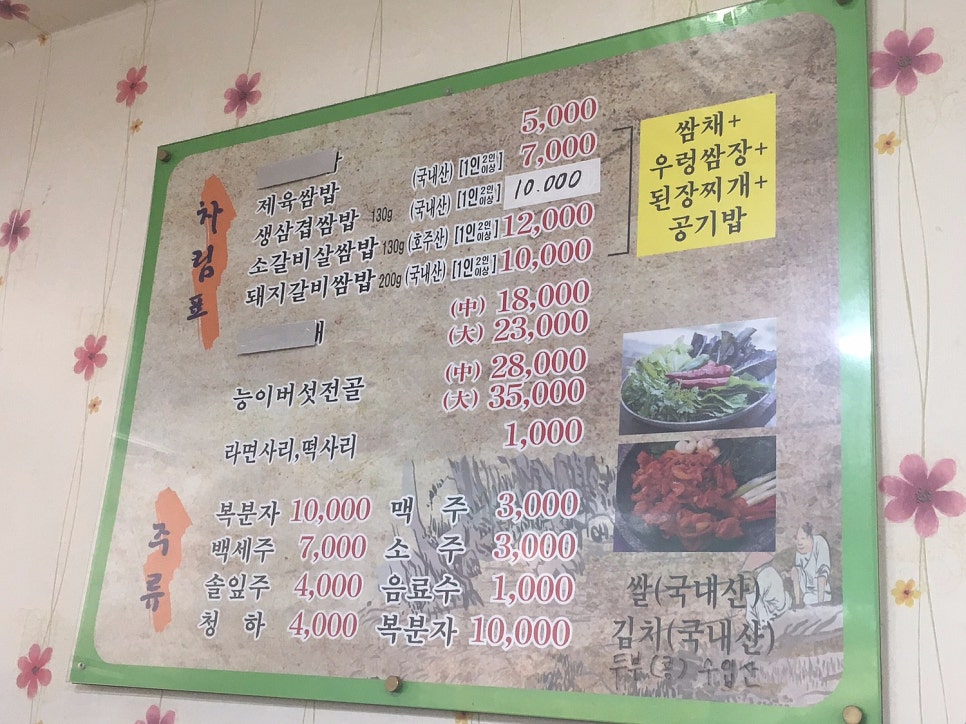 차림표
5,000
제육쌈밥 (국내산) [1인 2인이상] 7,000
생삼겹쌈밥 130g (국내산) [1인 2인이상] 10.000
소갈비살쌈밥 130g (호주산) [1인 2인이상] 12,000
돼지갈비쌈밥 200g (국내산) [1인 2인이상] 10,000
쌈채+
우렁쌈장+
된장찌개+
공기밥
(中) 18,000
(大) 23,000
능이버섯전골 (中) 28,000
(大) 35,000
라면사리,떡사리 1,000
주류
복분자 10,000 맥 주 3,000
백세주 7,000 소 주 3,000
솔잎주 4,000 음료수 1,000
청 하 4,000 복분자 10,000
쌀(국내산)
김치(국내산)
두부(콩) 수입산